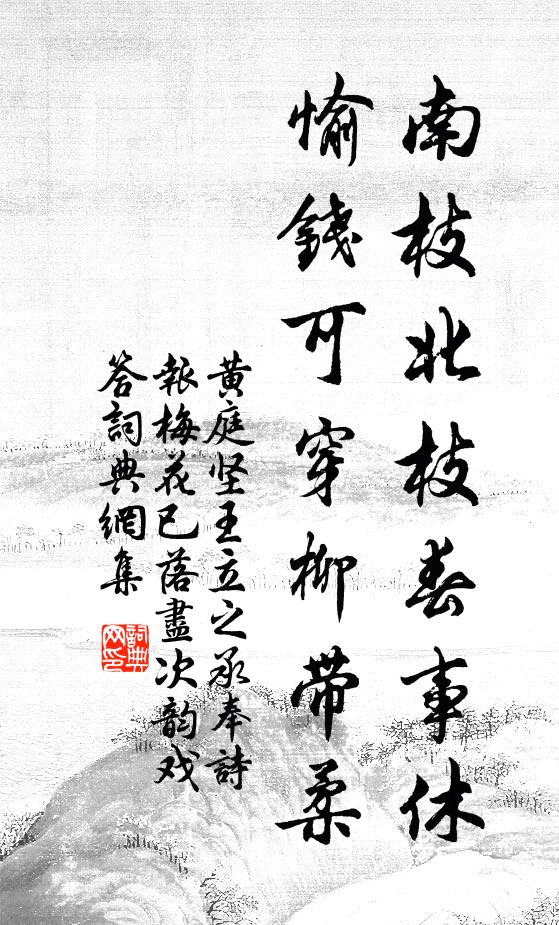 南枝北枝春事休
愉錢可穿柳帶柔
黄庭坚王立之承奉詩
報梅花已落盡次韵戏
答詞典網集
詞典网印